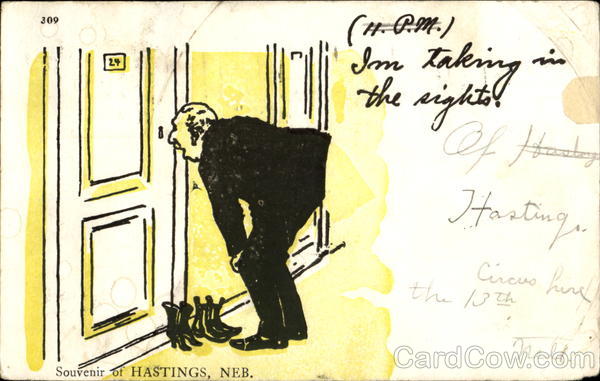 309
(11. P.M.)
Im taking in
the sights.
24
Of
Hastings.
Circus here
the 13th
Neb.
Souvenir of HASTINGS, NEB.
CardCow.com